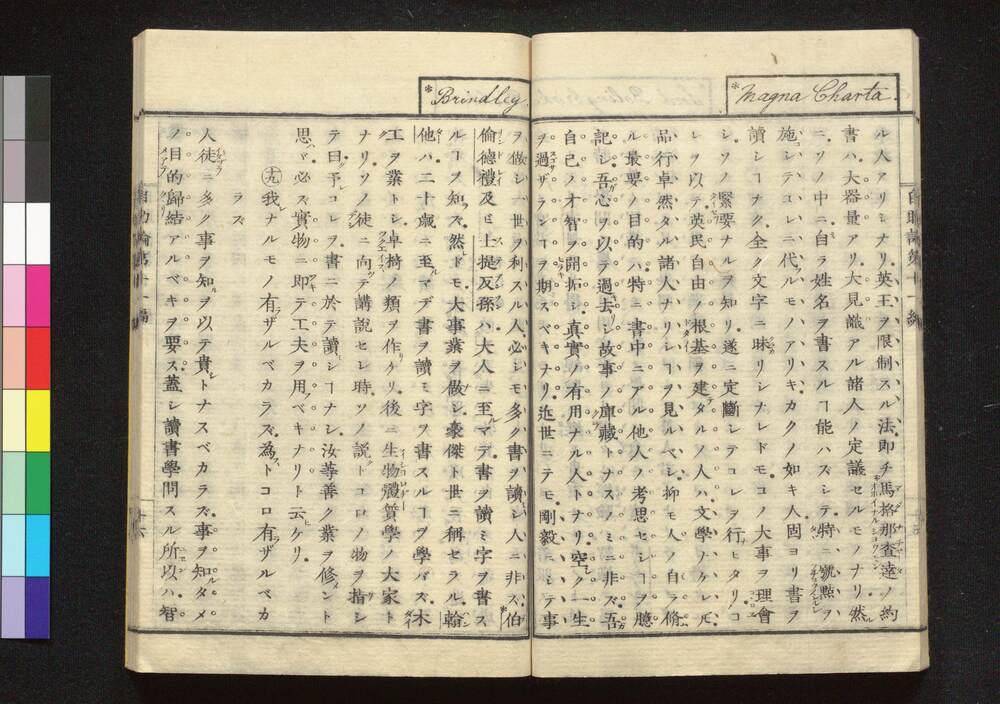 *Magna Charta.
ル人アリシナリ英王ヲ限制スル法即チ馬格那査達ノ約
書ハ大器量アリ大見識アル諸人ノ定議セルモノナリ然
ニソノ中ニ自ラ姓名ヲ書スルヿ能ハズシテ特ニ號點ヲ
施シテコレニ代フルモノアリキカクノ如キ人固ヨリ書ヲ
讀シヿナク全ク文字ニ昧リシナレドモコノ大事ヲ理會
シソノ緊要ナルヲ知リ遂ニ定斷シテコレヲ行ヒタリコ
レヲ以テ英民自由ノ根基ヲ建タルノ人ハ文學ナケレ𪜈
品行卓然タル諸人ナリシヿヲ見ルベシ抑モ人ノ自ラ脩
ル最要ノ目的ハ特ニ書中ニアル他人ノ考思セシヿヲ臆
記シ吾心ヲ以テ過去シ故事ノ庫藏トナスノミニ非ズ吾
自己ノ才智ヲ開拓シ真實ノ有用ナル人トナリ空ク一生
ヲ過ザランヿヲ期スベキナリ近世ニテモ剛毅ニシテ事
*Brindley.
ヲ做シ世ヲ利スル人必シモ多ク書ヲ讀シ人ニ非ズ伯
倫德禮及ビ士提反孫ハ大人ニ至ルマデ書ヲ讀ミ字ヲ書ス
ルヿヲ知ズ然ドモ大事業ヲ做シ豪傑ト世ニ稱セラル翰
他ハ二十歳ニ至ルマデ書ヲ讀ミ字ヲ書スルヿヲ學バズ木
工ヲ業トシ卓掎ノ類ヲ作ケリ後ニ生物體質學ノ大家ト
ナリソノ徒ニ向テ講説セシ時ソノ説トコロノ物ヲ指シ
テ曰ク予コレヲ書ニ於テ讀シヿナシ汝等善ク業ヲ修ント
思ハヾ必ズ實物ニ即テ工夫ヲ用ベキナリト云ケリ
十九 我ナルモノ有ザルベカラズ為トコロ有ザルベカ
ラズ
人徒ニ多ク事ヲ知ルヲ以テ貴トナスベカラズ事ヲ知ルタメ
ノ目的歸結アルベキヲ要ス蓋シ讀書學問スル所以ハ智
自助論第十一編